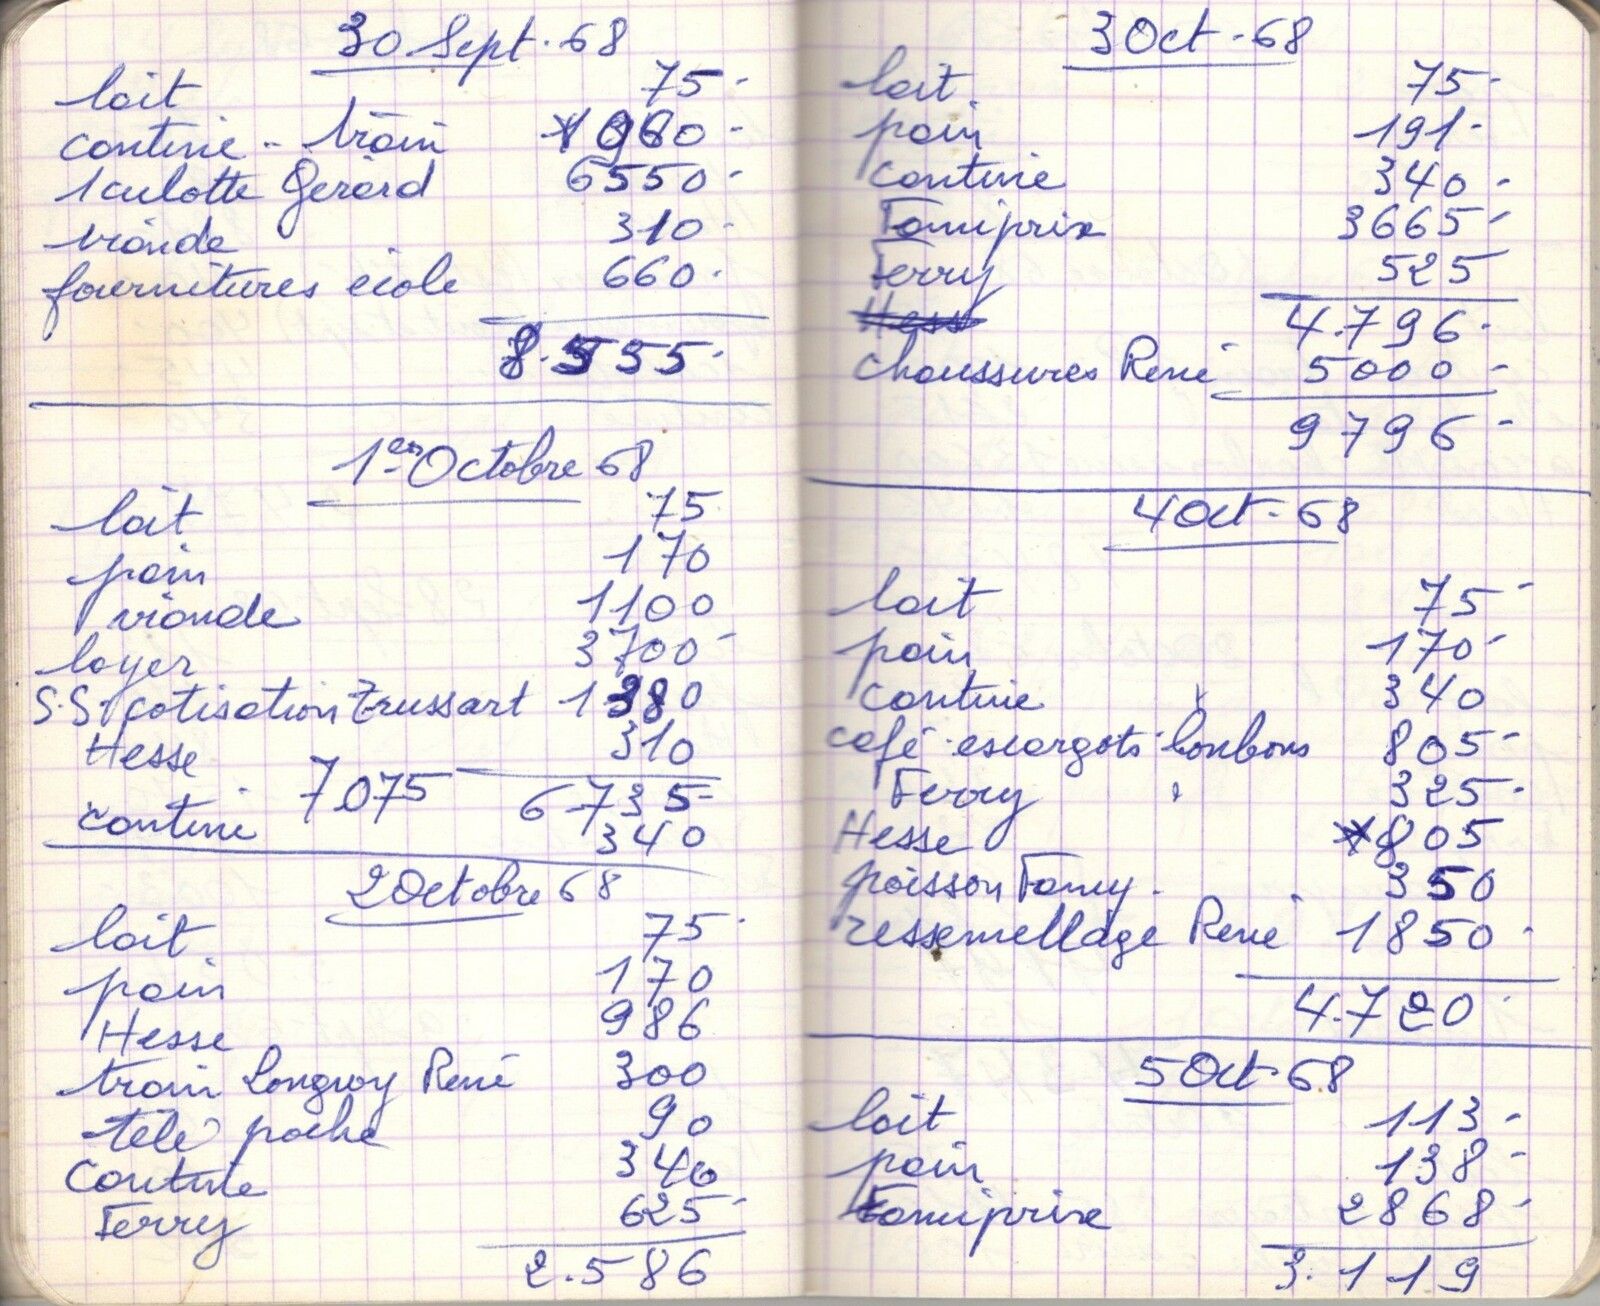 30 Sept. 68
lait 75-
cantine - train 960-
1 culotte Gérard 6550-
viande 310-
fournitures école 660-
8.555-
1er Octobre 68
lait 75
pain 170
viande 1100
loyer 3700-
S.S. cotisation Trussart 1380
Hesse 310
7075 6735-
cantine 340
2 Octobre 68
lait 75-
pain 170
Hesse 986
train Longwy René 300
télé poche 90
Cantine 340
Ferry 625-
2.586
3 Oct - 68
lait 75-
pain 191-
cantine 340-
Famiprix 3665-
Ferry 525
Hess 4.796-
chaussures René 5000-
9796-
4 Oct - 68
lait 75-
pain 170-
cantine 340
café escargots bonbons 805-
Ferry 325-
Hesse 805
poisson Famy. 350
ressemellage René 1850-
4.720
5 Oct - 68
lait 113-
pain 138-
Famiprix 2868-
3.119